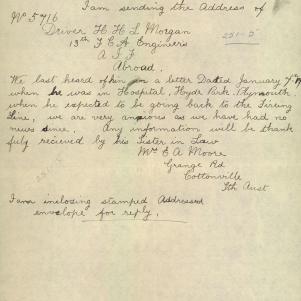 I am sending the Address of
No 5716
Driver H. H. L Morgan
13th F. C. A Engineers
A I F
Abroad.
We last heard of him in a letter Dated January 7th
when he was in Hospital, Hyde Park. Plymouth
when he expected to be going back to the Firing
Line, we are very anxious as we have had
no news since. Any information will be thank
fuly recieved by his Sister in Law
Mrs E A Moore
Grange Rd
Cottonville
Sth Aust
I am inclosing stamped Addressed
envelope for reply.